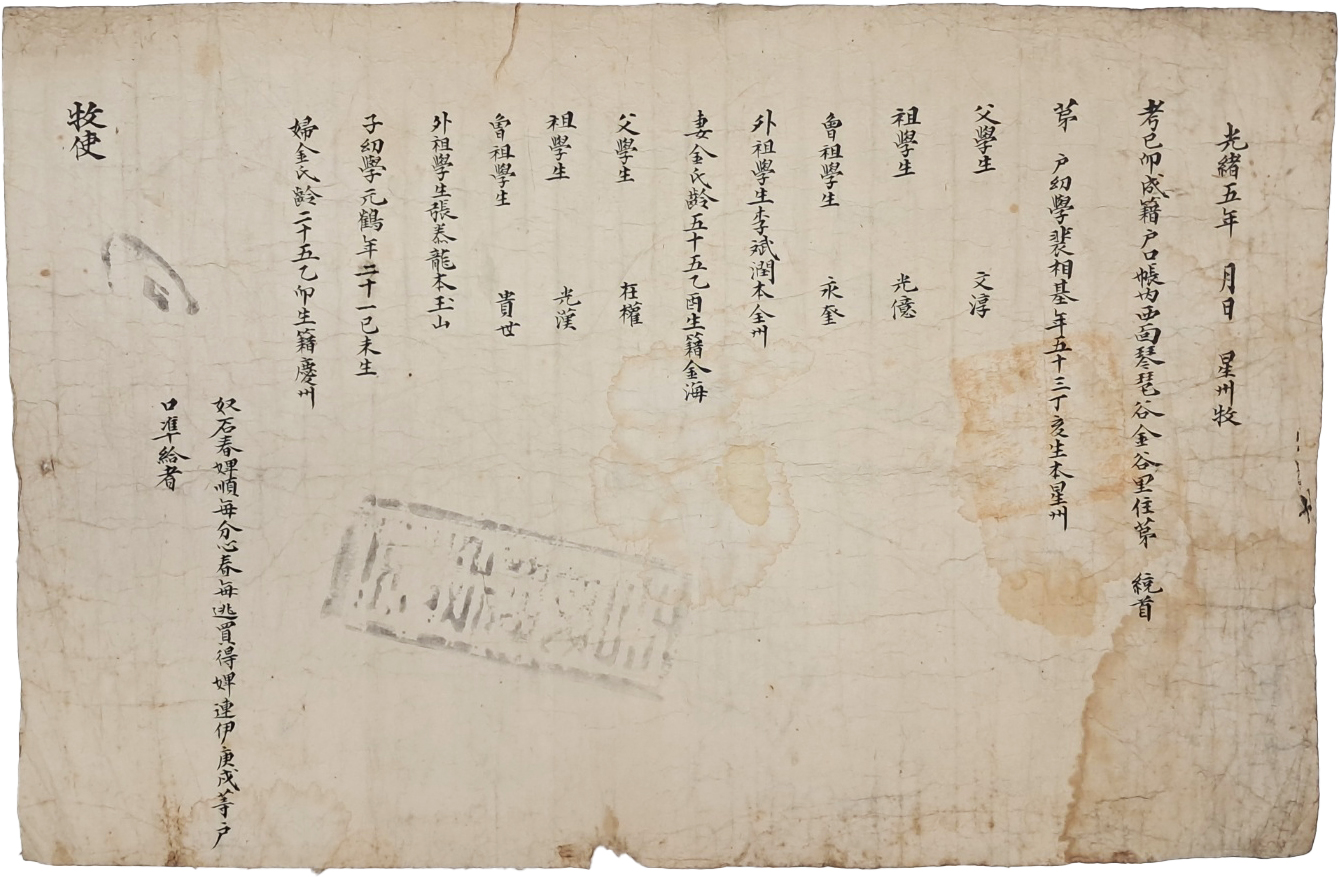 光緖五年 月日 星州牧
考己卯成籍戶口帳內西面琴琶谷金谷里住第 統首
第 戶幼學裴相基年五十三丁亥生本星州
父學生 文淳
祖學生 光億
曾祖學生 永奎
外祖學生李斌潤本全州
妻金氏齡五十五乙酉生籍金海
父學生 在權
祖學生 光漢
曾祖學生 貴世
外祖學生張泰龍本玉山
子幼學元鶴年二十一己未生
婦金氏齡二十五乙卯生籍慶州
奴石春婢順每分心春每逃買得婢連伊庚戌等戶
口準給者
牧使